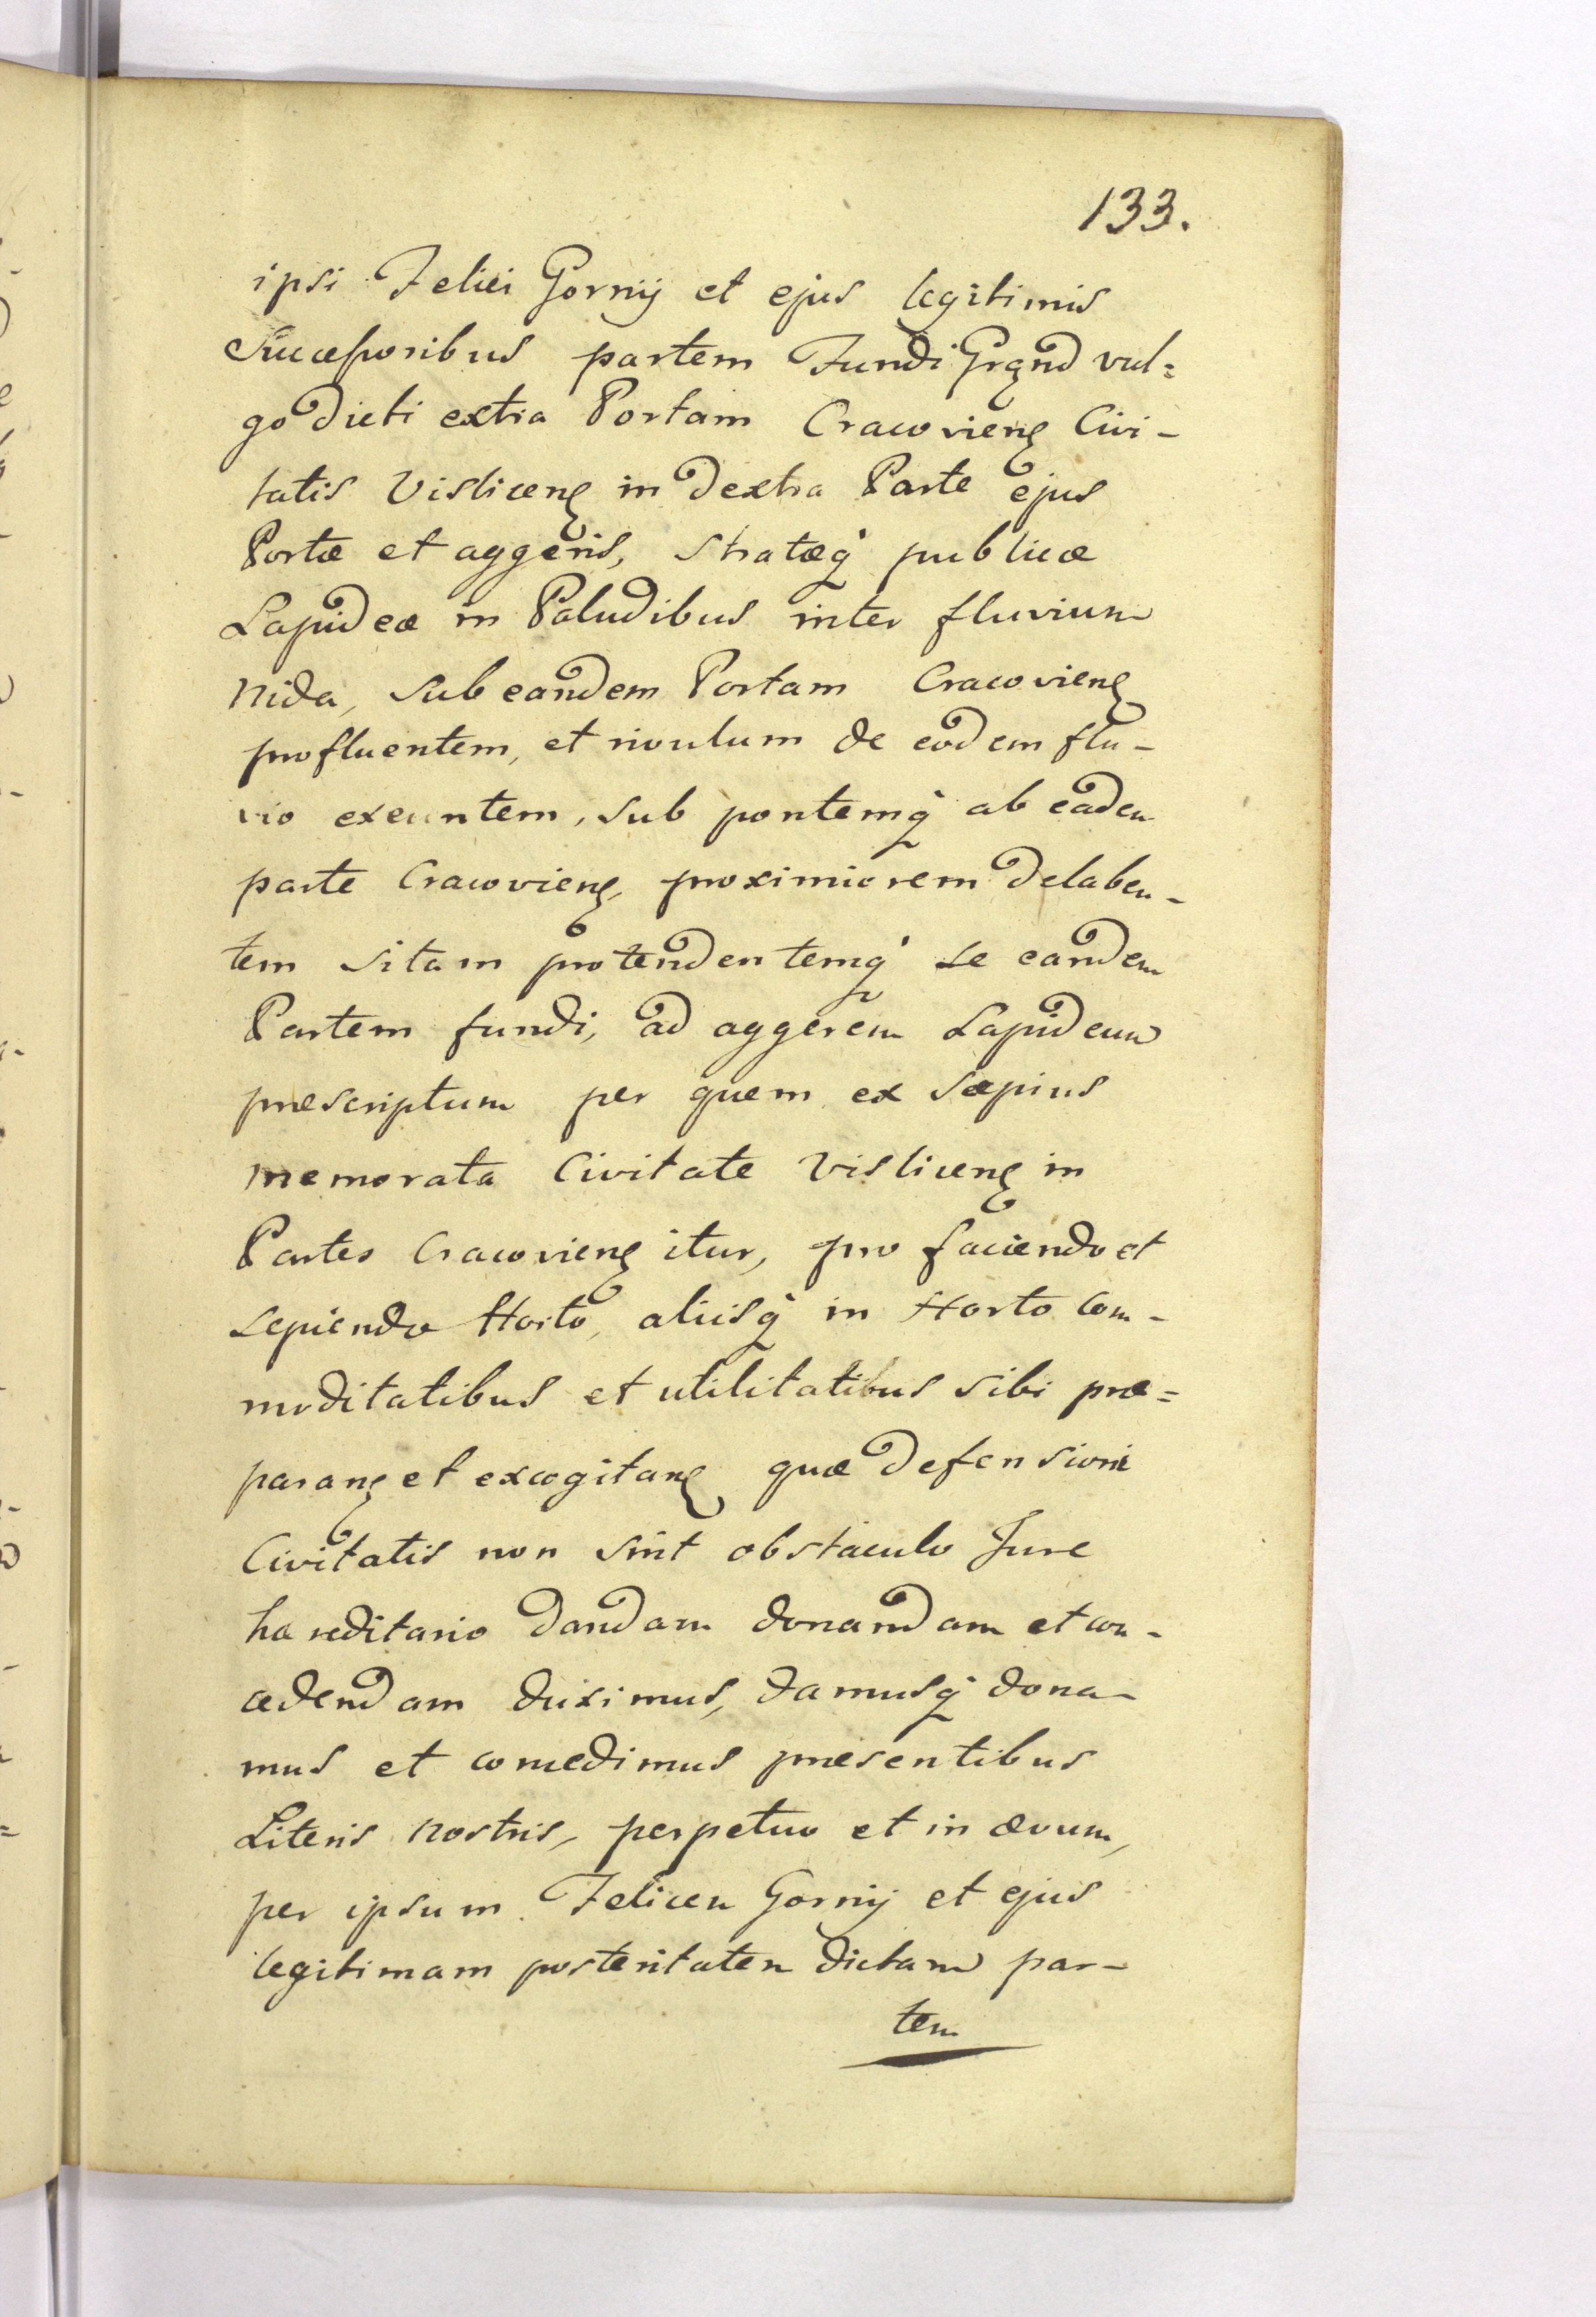 133.
ipsi Felici Gornij et ejus legitimis
Successoribus partem Fundi Grąnd vul=
go dicti extra Portam Cracovienȩ Civi-
tatis Vislicenȩ in dextra Parte ejus
Portæ et aggeris, stratæq̇ publicæ
Lapideæ in Paludibus inter fluvium
Nida, sub eandem Portam Cracovienȩ
profluentem, et rivulum de eodem flu-
vio exeuntem, sub pontemq̇ ab eadem
parte Cracovienȩ, proximiorem delaben-
tem sitam protendentemq̇ se eandem
Partem fundi, ad aggerem Lapideum
præscriptum per quem ex sæpius
memorata Civitate Vislicenȩ in
Partes Cracovienȩ itur, pro faciendo et
sepiendo Horto, aliisq̇ in Horto com-
moditatibus et utilitatibus sibi præ=
paranȩ et excogitanȩ quæ defensioni
Civitatis non sint obstaculo Jure
hæreditario dandam donandam et con-
cedendam duximus, damusq̇ dona-
mus et concedimus præsentibus
Literis nostris, perpetuo et in ævum,
per ipsum Felicem Gornij et ejus
legitimam posteritatem dictam par-
tem